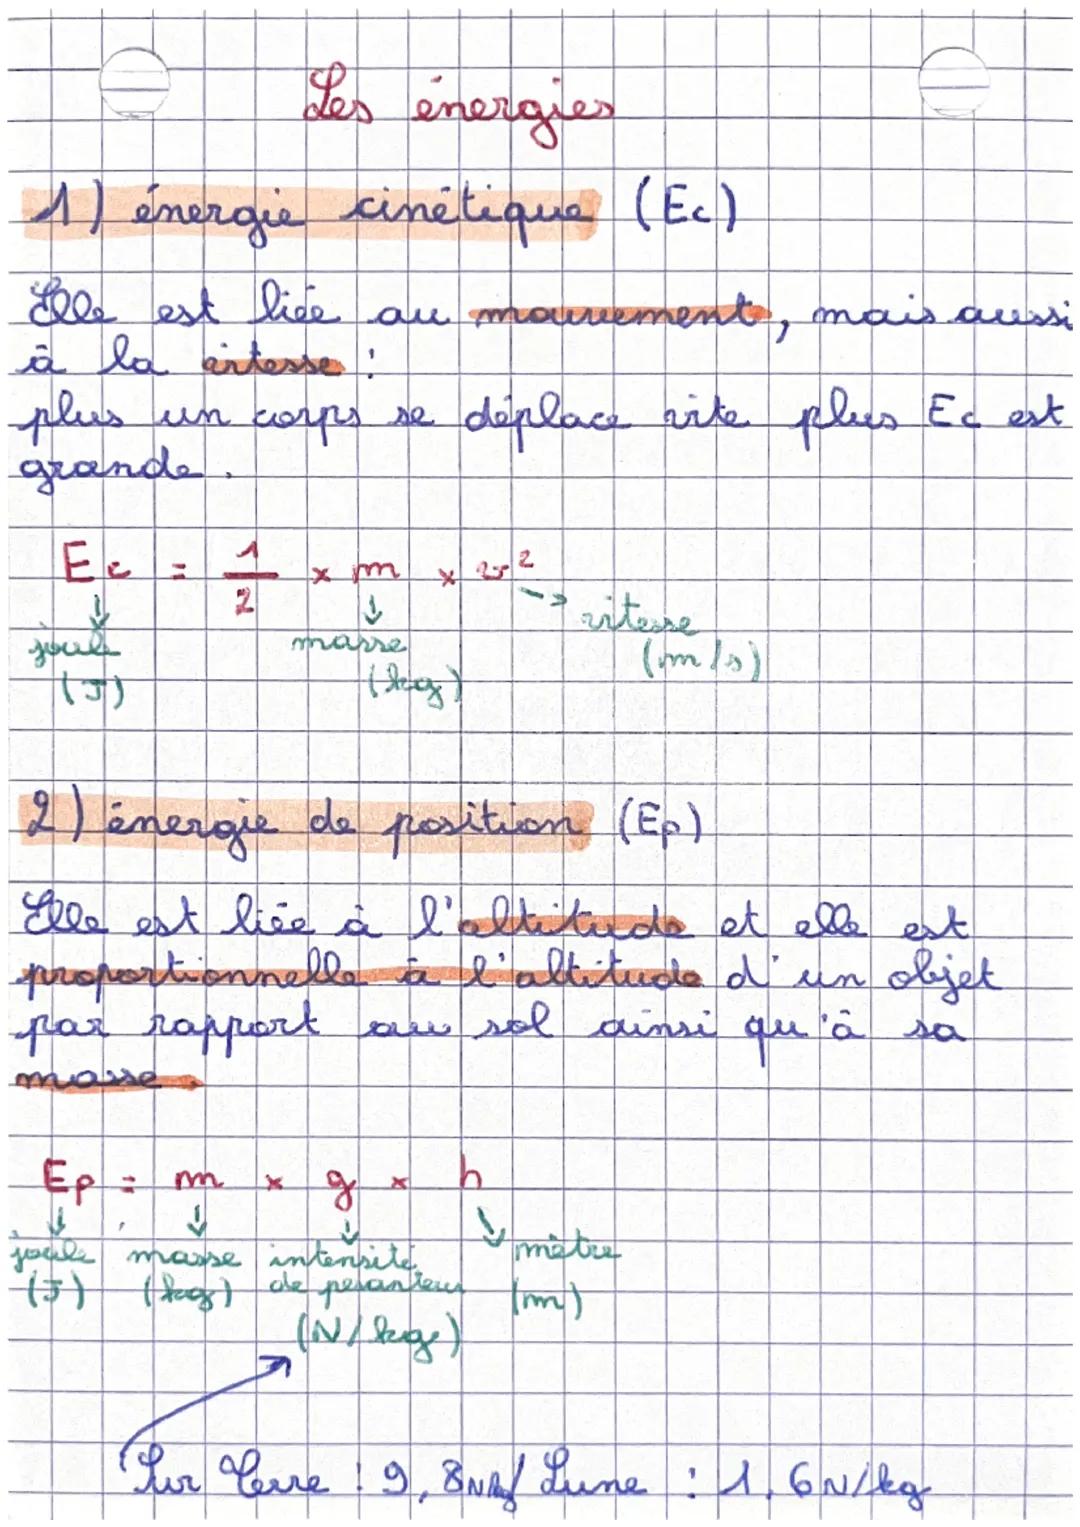 Les énergies
1) énergie cinétique (Ec)
Elle est liée au mouvement, mais aussi
à la vitesse :
plus un corps se déplace vite plus Ec est
grande.
Ec = 1/2 × m × v²
joule masse vitesse
(J) (kg) (m/s)
2) énergie de position (Ep)
Elle est liée à l'altitude et elle est
proportionnelle à l'altitude d'un objet
par rapport au sol ainsi qu'à sa
masse.
Ep = m × g × h
joule masse intensité mètre
(J) (kg) de pesanteur (m)
(N/kg)
Sur Terre : 9,8N/kg / Lune : 1,6N/kg